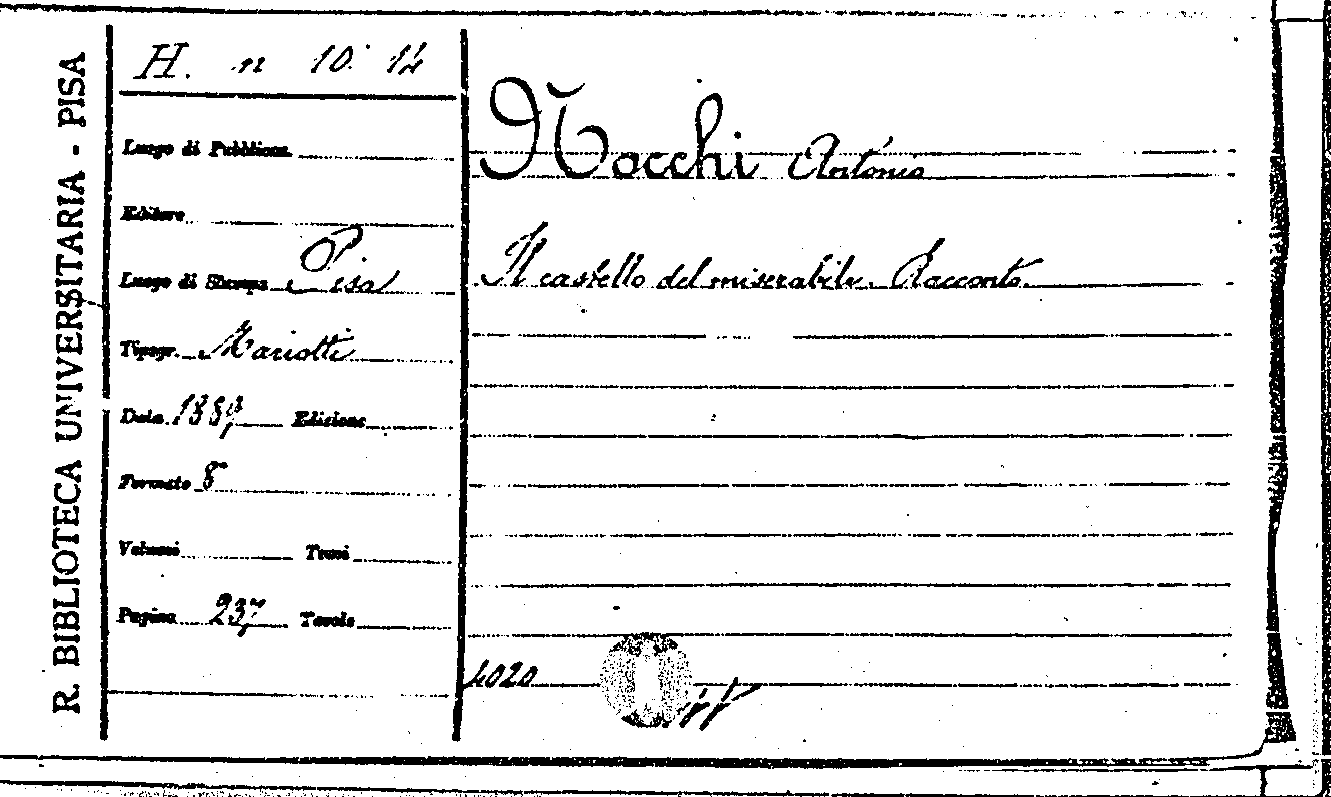 R. BIBLIOTECA UNIVERSITARIA - PISA
H. n 10. 14
Luogo di Pubblicaz.
Editore
Luogo di Stampa Pisa
Tipogr. Mariotti
Data 1889 Edizione
Formato 8°
Volumi Tomi
Pagine 237 Tavole
Nocchi Antonio
Il castello del miserabile. Racconto.
4020